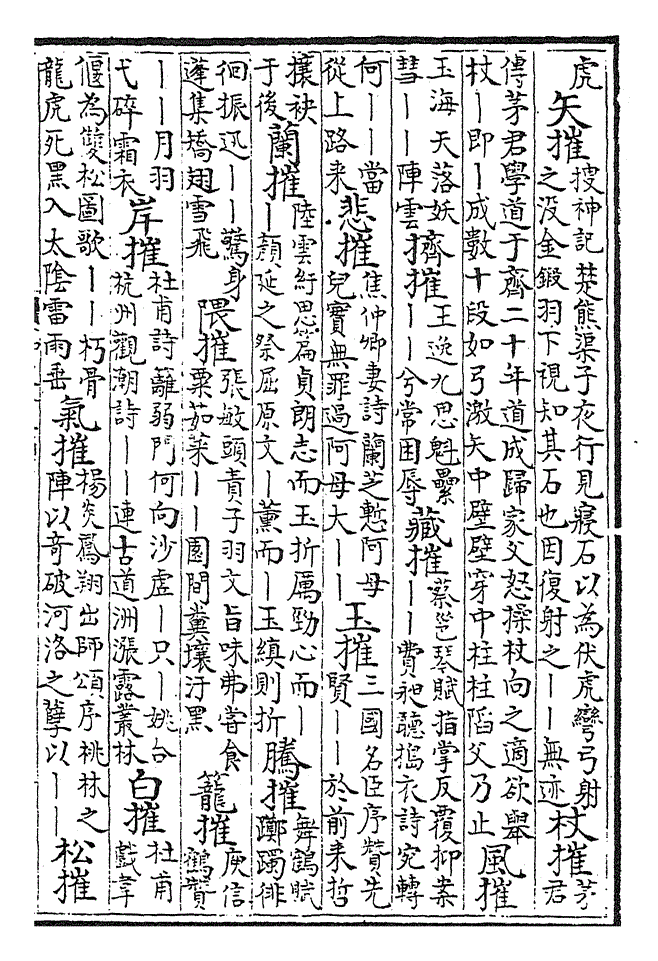 虎矢摧搜神記楚熊渠子夜行見寢石以為伏虎彎弓射之没金鍛羽下視知其石也因復射之——無迹杖摧茅君
傳茅君學道于齊二十年道成歸家父怒操杖向之適欲舉杖—即—成數十段如弓激矢中壁壁穿中柱柱陷父乃止風摧
玉海天落妖彗——陣雲擠摧王逸九思魁纍——兮常困辱藏摧蔡邕琴賦指掌反覆抑案——費昶聽搗衣詩宛轉
何——當從上路来悲摧焦仲卿妻詩蘭芝慙阿母兒實無罪過阿母大——玉摧三國名臣序贊先賢——於前来哲
攘袂于後蘭摧陸雲紆思篇貞朗志而玉折厲勁心而——顏延之祭屈原文—薰而—玉縝則折騰摧舞鶴賦躑躅徘
徊振迅——驚身蓬集矯翅雪飛隈摧張敏頭責子羽文旨味弗嘗食粟茹菜——園間糞壤汙黑籠摧庾信鶴贊
——月羽弋碎霜衣岸摧杜甫詩籬弱門何向沙虛—只—姚合杭州觀潮詩——連古道洲漲露叢林白摧杜甫戲韋
偃為雙松圖歌——朽骨龍虎死黑入太陰雷雨垂氣摧楊炎鳳翔出師頌序桃林之陣以竒破河洛之孽以——松摧